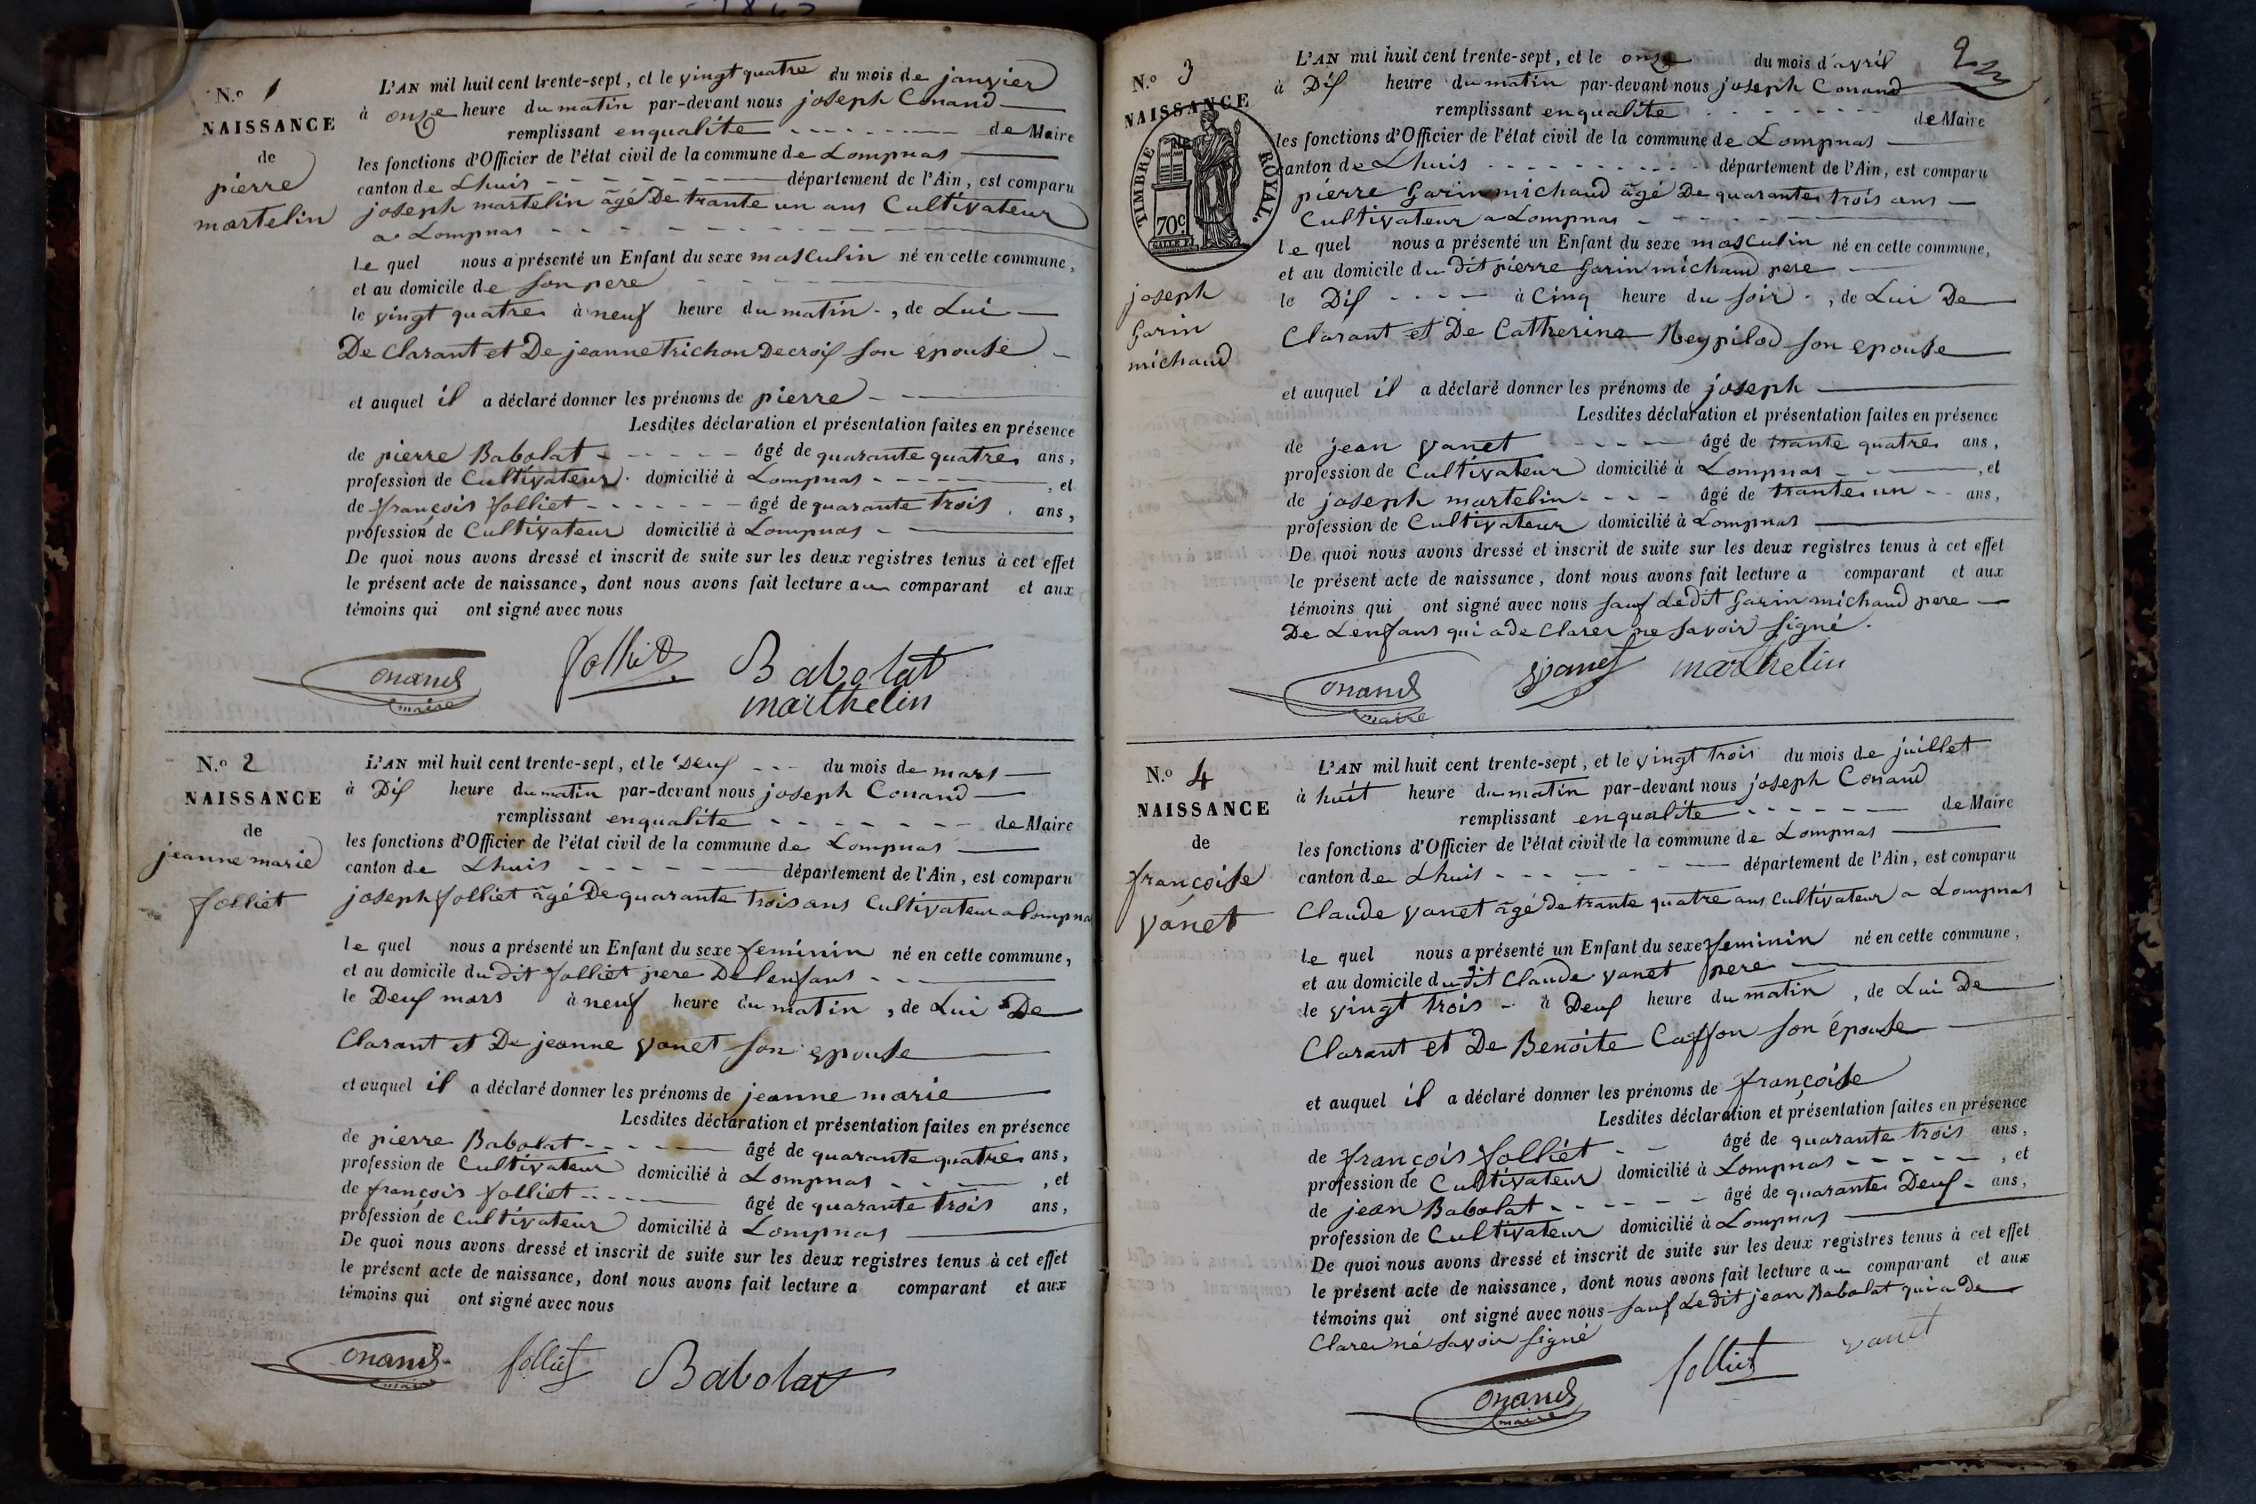 N.o 1
NAISSANCE
de
pierre
martelin
L'AN mil huit cent trente-sept, et le vingt quatre du mois de janvier
à onze heure du matin par-devant nous joseph Conand
remplissant en qualité de Maire
les fonctions d'Officier de l'état civil de la commune de Lompnas
canton de Lhuis département de l'Ain, est comparu
joseph martelin âgé De trante un ans Cultivateur
a Lompnas
le quel nous a présenté un Enfant du sexe masculin né en cette commune,
et au domicile de son pere
le vingt quatre à neuf heure du matin, de Lui
De Clarant et De jeanne trichon Decrois son épouse
et auquel il a déclaré donner les prénoms de pierre
Lesdites déclaration et présentation faites en présence
de pierre Babolat âgé de quarante quatre ans,
profession de Cultivateur domicilié à Lompnas, et
de françois folliet âgé de quarante trois ans,
profession de Cultivateur domicilié à Lompnas
De quoi nous avons dressé et inscrit de suite sur les deux registres tenus à cet effet
le présent acte de naissance, dont nous avons fait lecture au comparant et aux
témoins qui ont signé avec nous
Conand folliet Babolat
maire marthelin
N.o 2
NAISSANCE
de
jeanne marie
folliet
L'AN mil huit cent trente-sept, et le Deuf du mois de mars
à Dif heure du matin par-devant nous joseph Conand
remplissant en qualité de Maire
les fonctions d'Officier de l'état civil de la commune de Lompnas
canton de Lhuis département de l'Ain, est comparu
joseph folliet âgé De quarante trois ans Cultivateur a Lompnas
le quel nous a présenté un Enfant du sexe feminin né en cette commune,
et au domicile du dit folliet pere De lenfans
le Deuf mars à neuf heure du matin, de Lui De
Clarant et De jeanne vanet son epouse
et auquel il a déclaré donner les prénoms de jeanne marie
Lesdites déclaration et présentation faites en présence
de pierre Babolat âgé de quarante quatre ans,
profession de Cultivateur domicilié à Lompnas, et
de françois folliet âgé de quarante trois ans,
profession de Cultivateur domicilié à Lompnas
De quoi nous avons dressé et inscrit de suite sur les deux registres tenus à cet effet
le présent acte de naissance, dont nous avons fait lecture a comparant et aux
témoins qui ont signé avec nous
Conand folliet Babolat
maire
2
N.o 3
NAISSANCE
TIMBRE ROYAL.
70c
joseph
Garin
michaud
L'AN mil huit cent trente-sept, et le onze du mois d'avril
à Dif heure du matin par-devant nous joseph Conand
remplissant en qualité de Maire
les fonctions d'Officier de l'état civil de la commune de Lompnas
canton de Lhuis département de l'Ain, est comparu
pierre Garin michaud âgé De quarante trois ans
Cultivateur a Lompnas
le quel nous a présenté un Enfant du sexe masculin né en cette commune,
et au domicile du dit pierre Garin michaud pere
le Dif à Cinq heure du soir, de Lui De
Clarant et De Catherine Reypilod son epouse
et auquel il a déclaré donner les prénoms de joseph
Lesdites déclaration et présentation faites en présence
de jean vanet âgé de trante quatre ans,
profession de Cultivateur domicilié à Lompnas, et
de joseph martelin âgé de trante un ans,
profession de Cultivateur domicilié à Lompnas
De quoi nous avons dressé et inscrit de suite sur les deux registres tenus à cet effet
le présent acte de naissance, dont nous avons fait lecture a comparant et aux
témoins qui ont signé avec nous sauf Le dit Garin michaud pere
De Lenfans qui a de Clarer ne savoir signé.
Conand vanet marthelin
maire
N.o 4
NAISSANCE
de
françoise
vanet
L'AN mil huit cent trente-sept, et le vingt trois du mois de juillet
à huit heure du matin par-devant nous joseph Conand
remplissant en qualité de Maire
les fonctions d'Officier de l'état civil de la commune de Lompnas
canton de Lhuis département de l'Ain, est comparu
Claude vanet âgé de trante quatre ans Cultivateur a Lompnas
le quel nous a présenté un Enfant du sexe feminin né en cette commune,
et au domicile du dit Claude vanet pere
le vingt trois à Deuf heure du matin, de Lui De
Clarant et De Benoite Caffon son épouse
et auquel il a déclaré donner les prénoms de françoise
Lesdites déclaration et présentation faites en présence
de françois folliet âgé de quarante trois ans,
profession de Cultivateur domicilié à Lompnas, et
de jean Babolat âgé de quarante Deuf ans,
profession de Cultivateur domicilié à Lompnas
De quoi nous avons dressé et inscrit de suite sur les deux registres tenus à cet effet
le présent acte de naissance, dont nous avons fait lecture au comparant et aux
témoins qui ont signé avec nous sauf Le dit jean Babolat qui a De
Clarer né savoir signé
Conand folliet vanet
maire